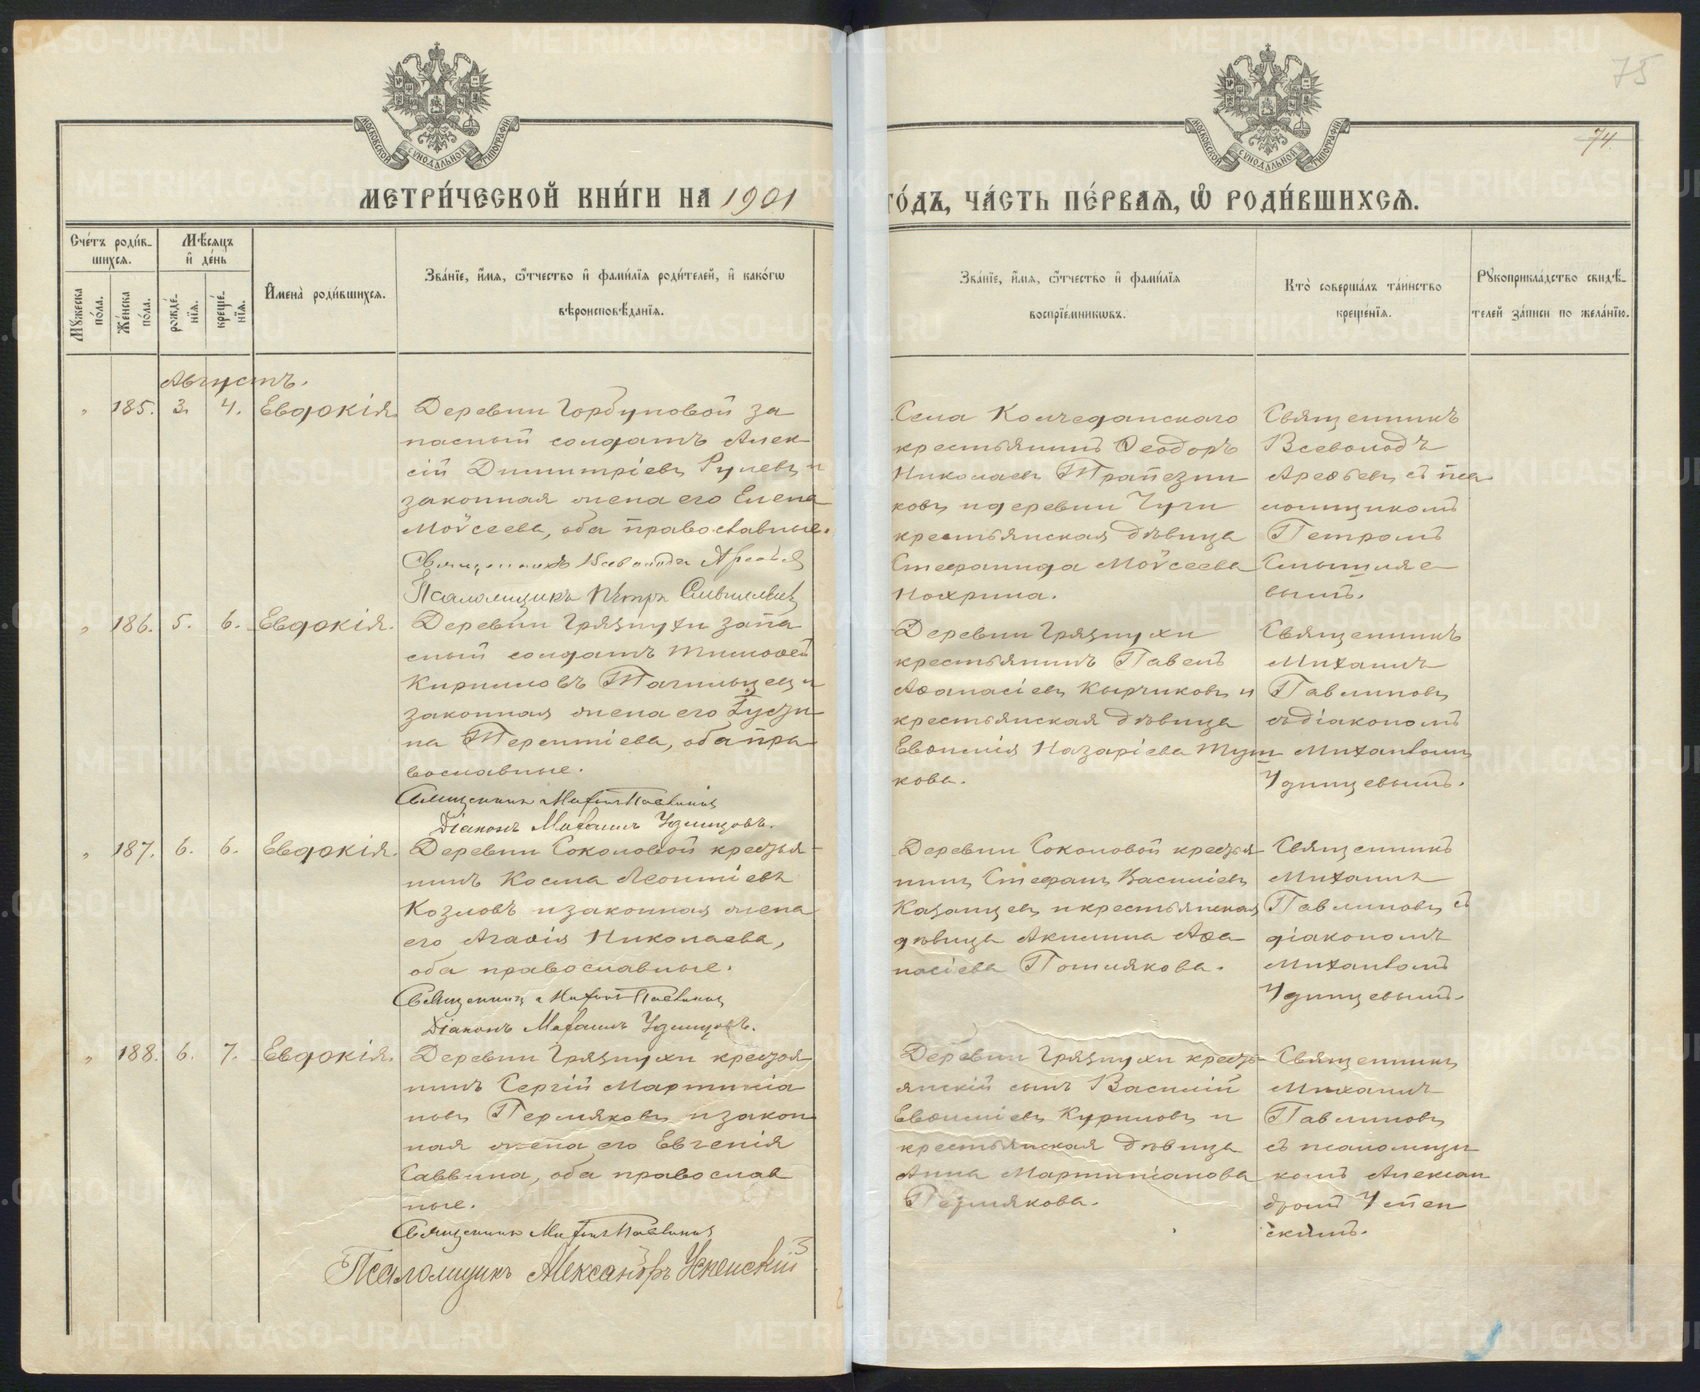 75
74.
МОСКОВСКОЙ СѴНОДАЛЬНОЙ ТИПОГРАФІИ
МОСКОВСКОЙ СѴНОДАЛЬНОЙ ТИПОГРАФІИ
МЕТРИ́ЧЕСКОЙ КНИ́ГИ НА 1901
ГО́ДЪ, ЧА́СТЬ ПЕ́РВАѦ, Ѡ҆ РОДИ́ВШИХСѦ.
Сче́тъ роди́в-
шихсѧ.
Мꙋ́жеска по́ла.
Же́нска по́ла.
Мѣ́сѧцъ
и҆ де́нь
рожде́-
нїѧ.
креще́-
нїѧ.
И҆мена̀ роди́вшихсѧ.
Зва́нїе, и҆́мѧ, ѻ҆́тчество и҆ фами́лїѧ роди́телей, и҆ како́гѡ
вѣроисповѣ́данїѧ.
Зва́нїе, и҆́мѧ, ѻ҆́тчество и҆ фами́лїѧ
воспрїе́мникѡвъ.
Кто̀ соверша́лъ та́инство
креще́нїѧ.
Рꙋкоприкла́дство свидѣ́-
телей за́писи по жела́нїю.
Августъ.
" 185. 3. 4. Евдокія
Деревни Горбуновой за
пасный солдатъ Алек-
сій Димитріевъ Рулевъ и
законная жена его Елена
Моѵсеева, оба православные.
Священникъ Всеволодъ Арефьев
Псаломщикъ Петръ Смышляев
Села Колчеданскаго
крестьянинъ Ѳеодоръ
Николаевъ Трапезни
ковъ и деревни Чуги
крестьянская дѣвица
Стефанида Моѵсеева
Нохрина.
Священникъ
Всеволодъ
Арефьевъ съ пса
ломщикомъ
Петромъ
Смышляе
вымъ.
" 186. 5. 6. Евдокія.
Деревни Грязнухи запа
сный солдатъ Тимоѳей
Кирилловъ Тагильцевъ и
законная жена его Іусти
на Терентіева, оба пра
вославные.
Священникъ Михаилъ Павлиновъ
Діаконъ Михаилъ Удинцовъ.
Деревни Грязнухи
крестьянинъ Павелъ
Аѳанасіевъ Кырчиковъ и
крестьянская дѣвица
Евѳимія Назаріева Туш
кова.
Священникъ
Михаилъ
Павлиновъ
съ діакономъ
Михаиломъ
Удинцевымъ.
" 187. 6. 6. Евдокія.
Деревни Соколовой крестья-
нинъ Косма Леонтіевъ
Козловъ и законная жена
его Агафія Николаева,
оба православные.
Священникъ Михаилъ Павлиновъ
Діаконъ Михаилъ Удинцовъ.
Деревни Соколовой крестья
нинъ Стефанъ Василіевъ
Казанцевъ и крестьянская
дѣвица Акилина Аѳа
насіева Пошлякова.
Священникъ
Михаилъ
Павлиновъ съ
діакономъ
Михаиломъ
Удинцевымъ.
" 188. 6. 7. Евдокія.
Деревни Грязнухи крестья
нинъ Сергій Мартиніа
новъ Пермяковъ и закон
ная жена его Евгенія
Саввина, оба православ
ные.
Священникъ Михаилъ Павлиновъ
Псаломщикъ Александръ Успенскій
Деревни Грязнухи кресть-
янскій сынъ Василій
Евѳиміевъ Куриловъ и
крестьянская дѣвица
Анна Мартиніанова
Пермякова.
Священникъ
Михаилъ
Павлиновъ
съ псаломщи
комъ Алексан
дромъ Успен
скимъ.